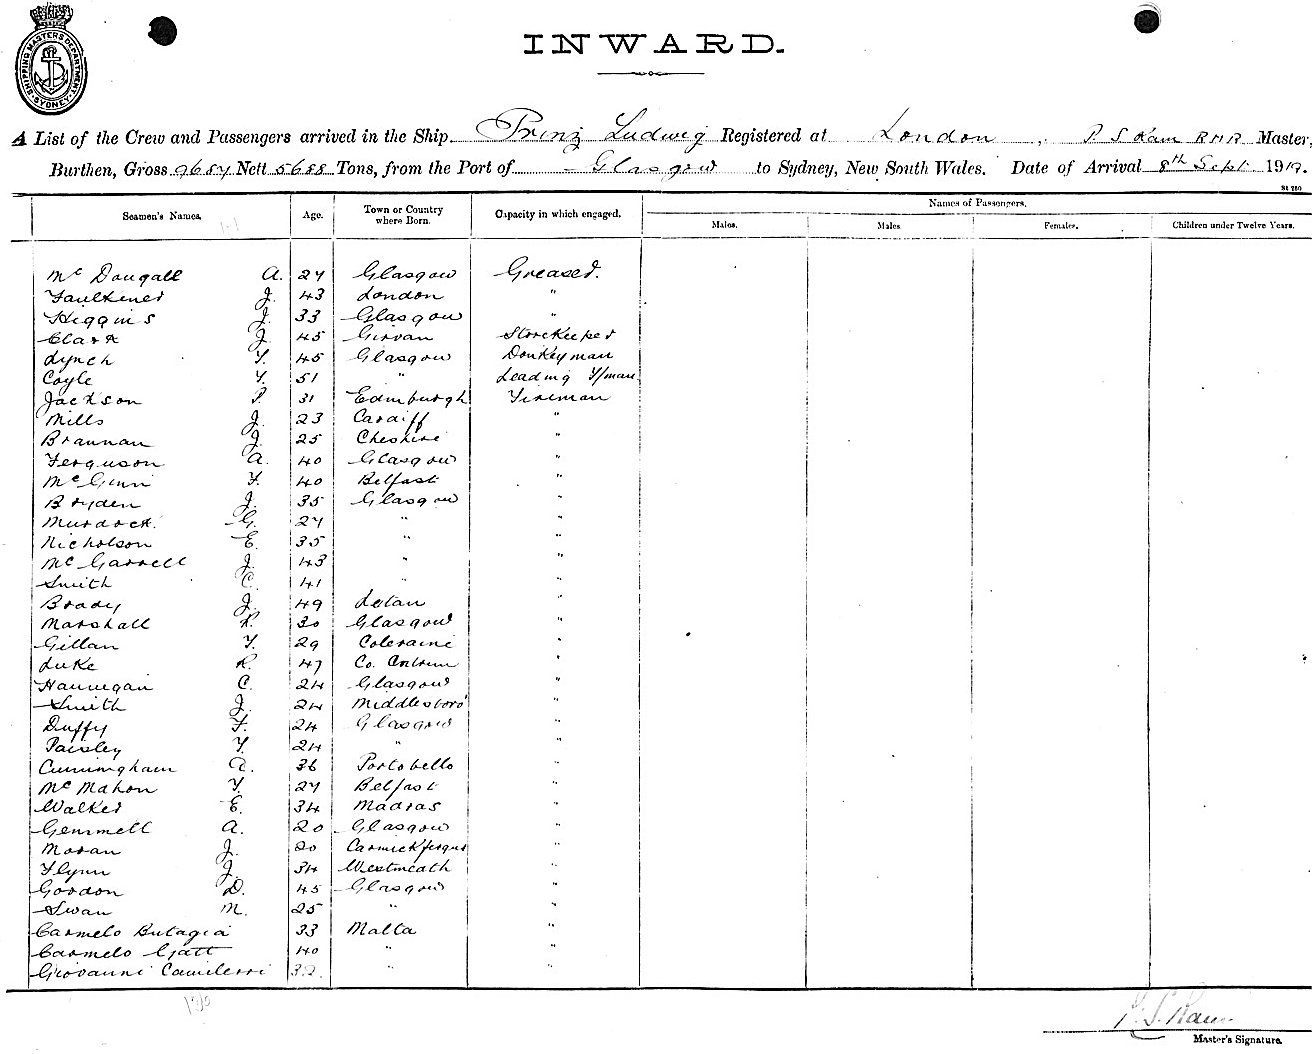 SHIPPING MASTERS DEPARTMENT
SYDNEY
INWARD.
A List of the Crew and Passengers arrived in the Ship Prinz Ludwig Registered at London, P S Kam RNR Master,
Burthen, Gross 9687 Nett 5688 Tons, from the Port of Glasgow to Sydney, New South Wales. Date of Arrival 8th Sept 1919.
Seamen's Names. Age. Town or Country where Born. Capacity in which engaged. Names of Passengers.
Males. Males Females. Children under Twelve Years.
Mc Dougall A. 27 Glasgow Greaser.
Faulkiner J. 43 London "
Higgins J. 33 Glasgow "
Clark J. 45 Girvan Storekeeper
Lynch T. 45 Glasgow Donkeyman
Coyle T. 51 " Leading F/man
Jackson P. 31 Edinburgh Fireman
Mills J. 23 Cardiff "
Brannan J. 25 Cheshire "
Ferguson A. 40 Glasgow "
Mc Ginn F. 40 Belfast "
Bryden J. 35 Glasgow "
Murdock. G. 27 " "
Nicholson E. 35 " "
Mc Garrell J. 43 " "
Smith C. 41 " "
Brady J. 49 "
Marshall R. 30 Glasgow "
Gillan T. 29 Coleraine "
Luke R. 47 Co. Antrim "
Hannigan C. 24 Glasgow "
Smith J. 24 Middlesboro' "
Duffy F. 24 Glasgow "
Paisley T. 24 " "
Cunningham A. 36 Portobello "
Mc Mahon T. 27 Belfast "
Walker E. 34 Madras "
Gemmell A. 20 Glasgow "
Moran J. 20 Carrickfergus "
Flynn J. 34 Westmeath "
Gordon D. 45 Glasgow "
Swan M. 25 " "
Carmelo Butagia 33 Malta "
Carmelo Gatt 40 " "
Giovanni Camilerri 32. " "
Master's Signature.